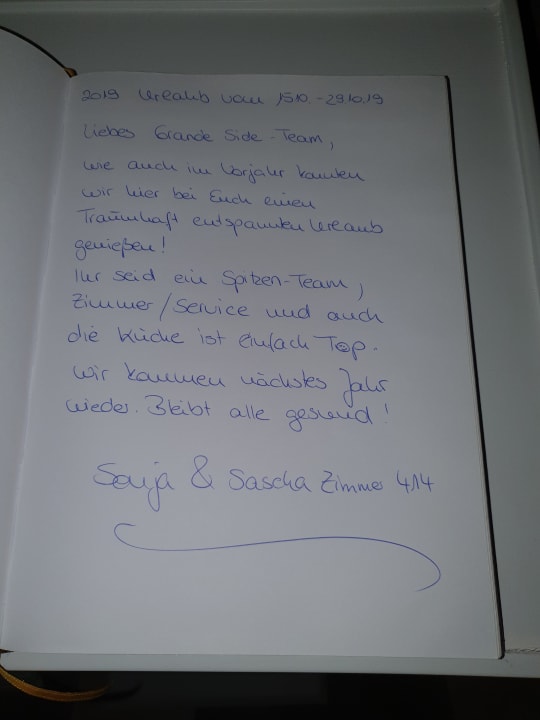 2019 Urlaub vom 15.10. - 29.10.19
Liebes Grande Side - Team,
wie auch im Vorjahr konnten
wir hier bei Euch einen
Traumhaft entspannten Urlaub
genießen!
Ihr seid ein Spitzen-Team,
Zimmer/Service und auch
die Küche ist einfach Top.
Wir kommen nächstes Jahr
wieder. Bleibt alle gesund!
Sonja & Sascha Zimmer 414